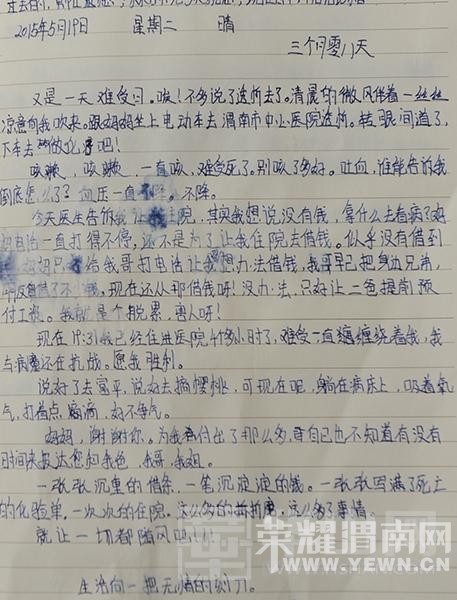 2015年5月19日 星期二 晴
三个月零1天
又是一天难受日。唉！不多说了透析去了。清晨的微风伴着一丝丝
凉意向我吹来。跟妈妈坐上电动车去渭南市中心医院透析。转眼间道了，
下车去做化验吧！
咳嗽，咳嗽，一直咳，难受死了。别咳了多好。吐血，谁能告诉我
到底怎么了？血压一直不降。不降。
今天医生告诉我让我住院，其实我想说，没有钱，拿什么去看病了
电话一直打得不停，还不是为了让我住院去借钱。似乎没有借到
妈妈只好给我哥打电话让我想办法借钱，我哥早已把身边兄弟，
朋友借了不少钱，现在还从那借钱呀！没办法，只好让二爸提前预
付工资。我就是个拖累，害人呀！
现在19:31我已经住进医院4个多小时了，难受一直缠绕着我，我
与病魔还在抗战。愿我胜利。
说好了去富平，说好去摘樱桃，可现在呢，躺在病床上，吸着氧
气，打着点滴，好不争气。
妈妈，谢谢你。为我付出了那么多，我自己也不知道有没有
时间来报达您和我爸，我哥，我姐。
一张张沉重的借条，一笔沉淀淀的钱。一张张写满了死亡
的化验单，一次次的住院，这么多的折磨，这么多了事情。
就让一切都随风吧！！！
生活向一把无情的刻刀。
荣耀渭南网
WWW.YEWN.CN